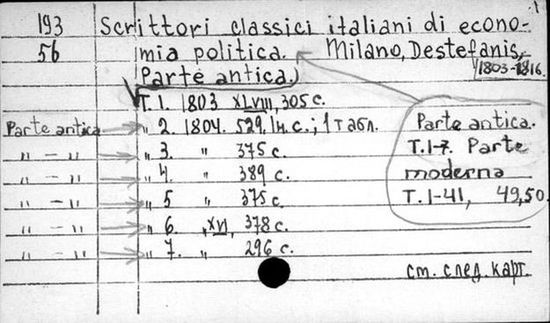 193 Scrittori classici italiani di econo-
56 mia politica. Milano, Destefanis,
1803-1816.
Parte antica.)
Т. 1. 1803 XLVIII, 305 с.
Parte antica „ 2. 1804. 529, 1н.с.; 1 табл.
„ — „ „ 3. „ 375 с.
„ — „ „ 4. „ 389 с.
„ — „ „ 5 „ 375 с.
„ — „ „ 6. „ XVI, 378 с.
„ — „ „ 7. „ 296 с.
Parte antica.
Т. 1-7. Parte
moderna
Т. 1-41, 49,50.
см. след. карт.